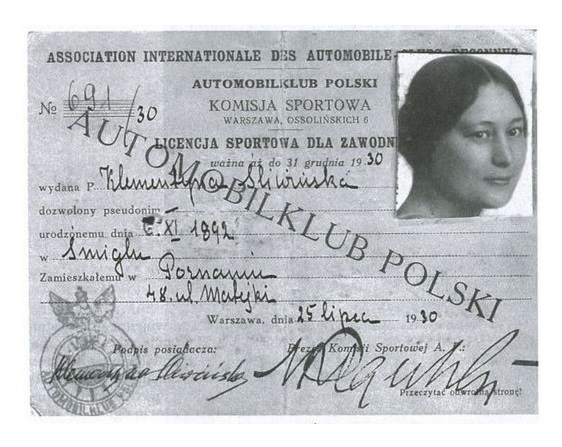 ASSOCIATION INTERNATIONALE DES AUTOMOBILE-CLUBS RECONNUS
AUTOMOBILKLUB POLSKI
KOMISJA SPORTOWA
WARSZAWA, OSSOLIŃSKICH 6
№ 691/30
LICENCJA SPORTOWA DLA ZAWODN
ważna aż do 31 grudnia 1930
wydana P. Klementyna Śliwińska
dozwolony pseudonim —
urodzonemu dnia 6. XI 1892
w Śmiglu
Zamieszkałemu w Poznaniu
48. ul. Matejki
Warszawa, dnia 25 lipca 1930
Podpis posiadacza: Prezes Komisji Sportowej A. P.:
Klementyna Śliwińska
Przeczytać odwrotną stronę!
AUTOMOBILKLUB POLSKI
AUTOMOBILKLUB